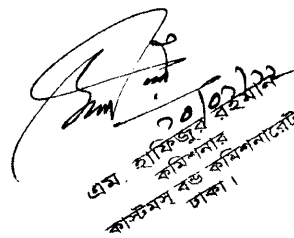 ২০/০২/২২
এম. হাফিজুর রহমান
কমিশনার
কাস্টমস্ বন্ড কমিশনারেট
ঢাকা।